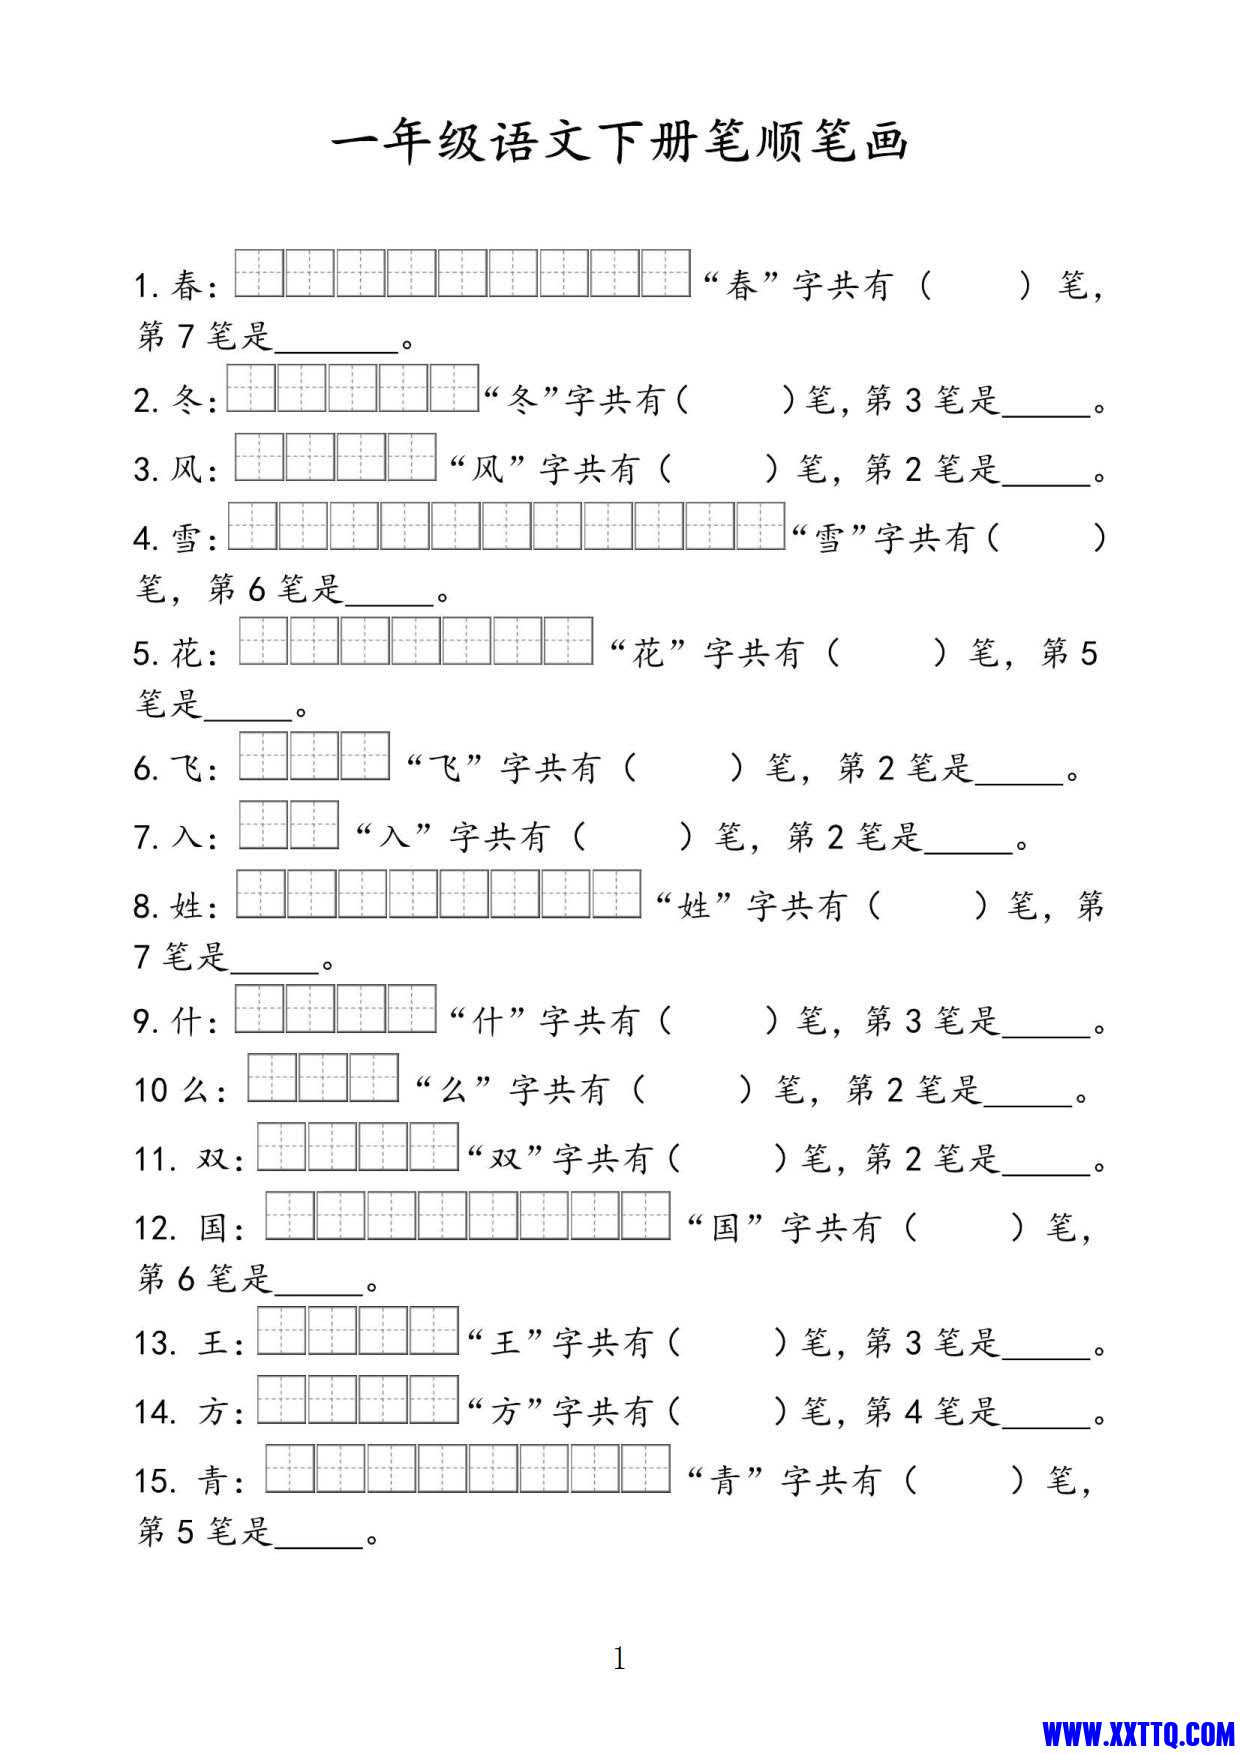 一年级语文下册笔顺笔画
1.春: “春”字共有（    ）笔，
第7笔是_______。
2.冬: “冬”字共有（    ）笔，第3笔是_____。
3.风: “风”字共有（    ）笔，第2笔是_____。
4.雪: “雪”字共有（    ）
笔，第6笔是_____。
5.花: “花”字共有（    ）笔，第5
笔是_____。
6.飞: “飞”字共有（    ）笔，第2笔是_____。
7.入: “入”字共有（    ）笔，第2笔是_____。
8.姓: “姓”字共有（    ）笔，第
7笔是_____。
9.什: “什”字共有（    ）笔，第3笔是_____。
10么: “么”字共有（    ）笔，第2笔是_____。
11. 双: “双”字共有（    ）笔，第2笔是_____。
12. 国: “国”字共有（    ）笔，
第6笔是_____。
13. 王: “王”字共有（    ）笔，第3笔是_____。
14. 方: “方”字共有（    ）笔，第4笔是_____。
15. 青: “青”字共有（    ）笔，
第5笔是_____。
1
WWW.XXTTQ.COM